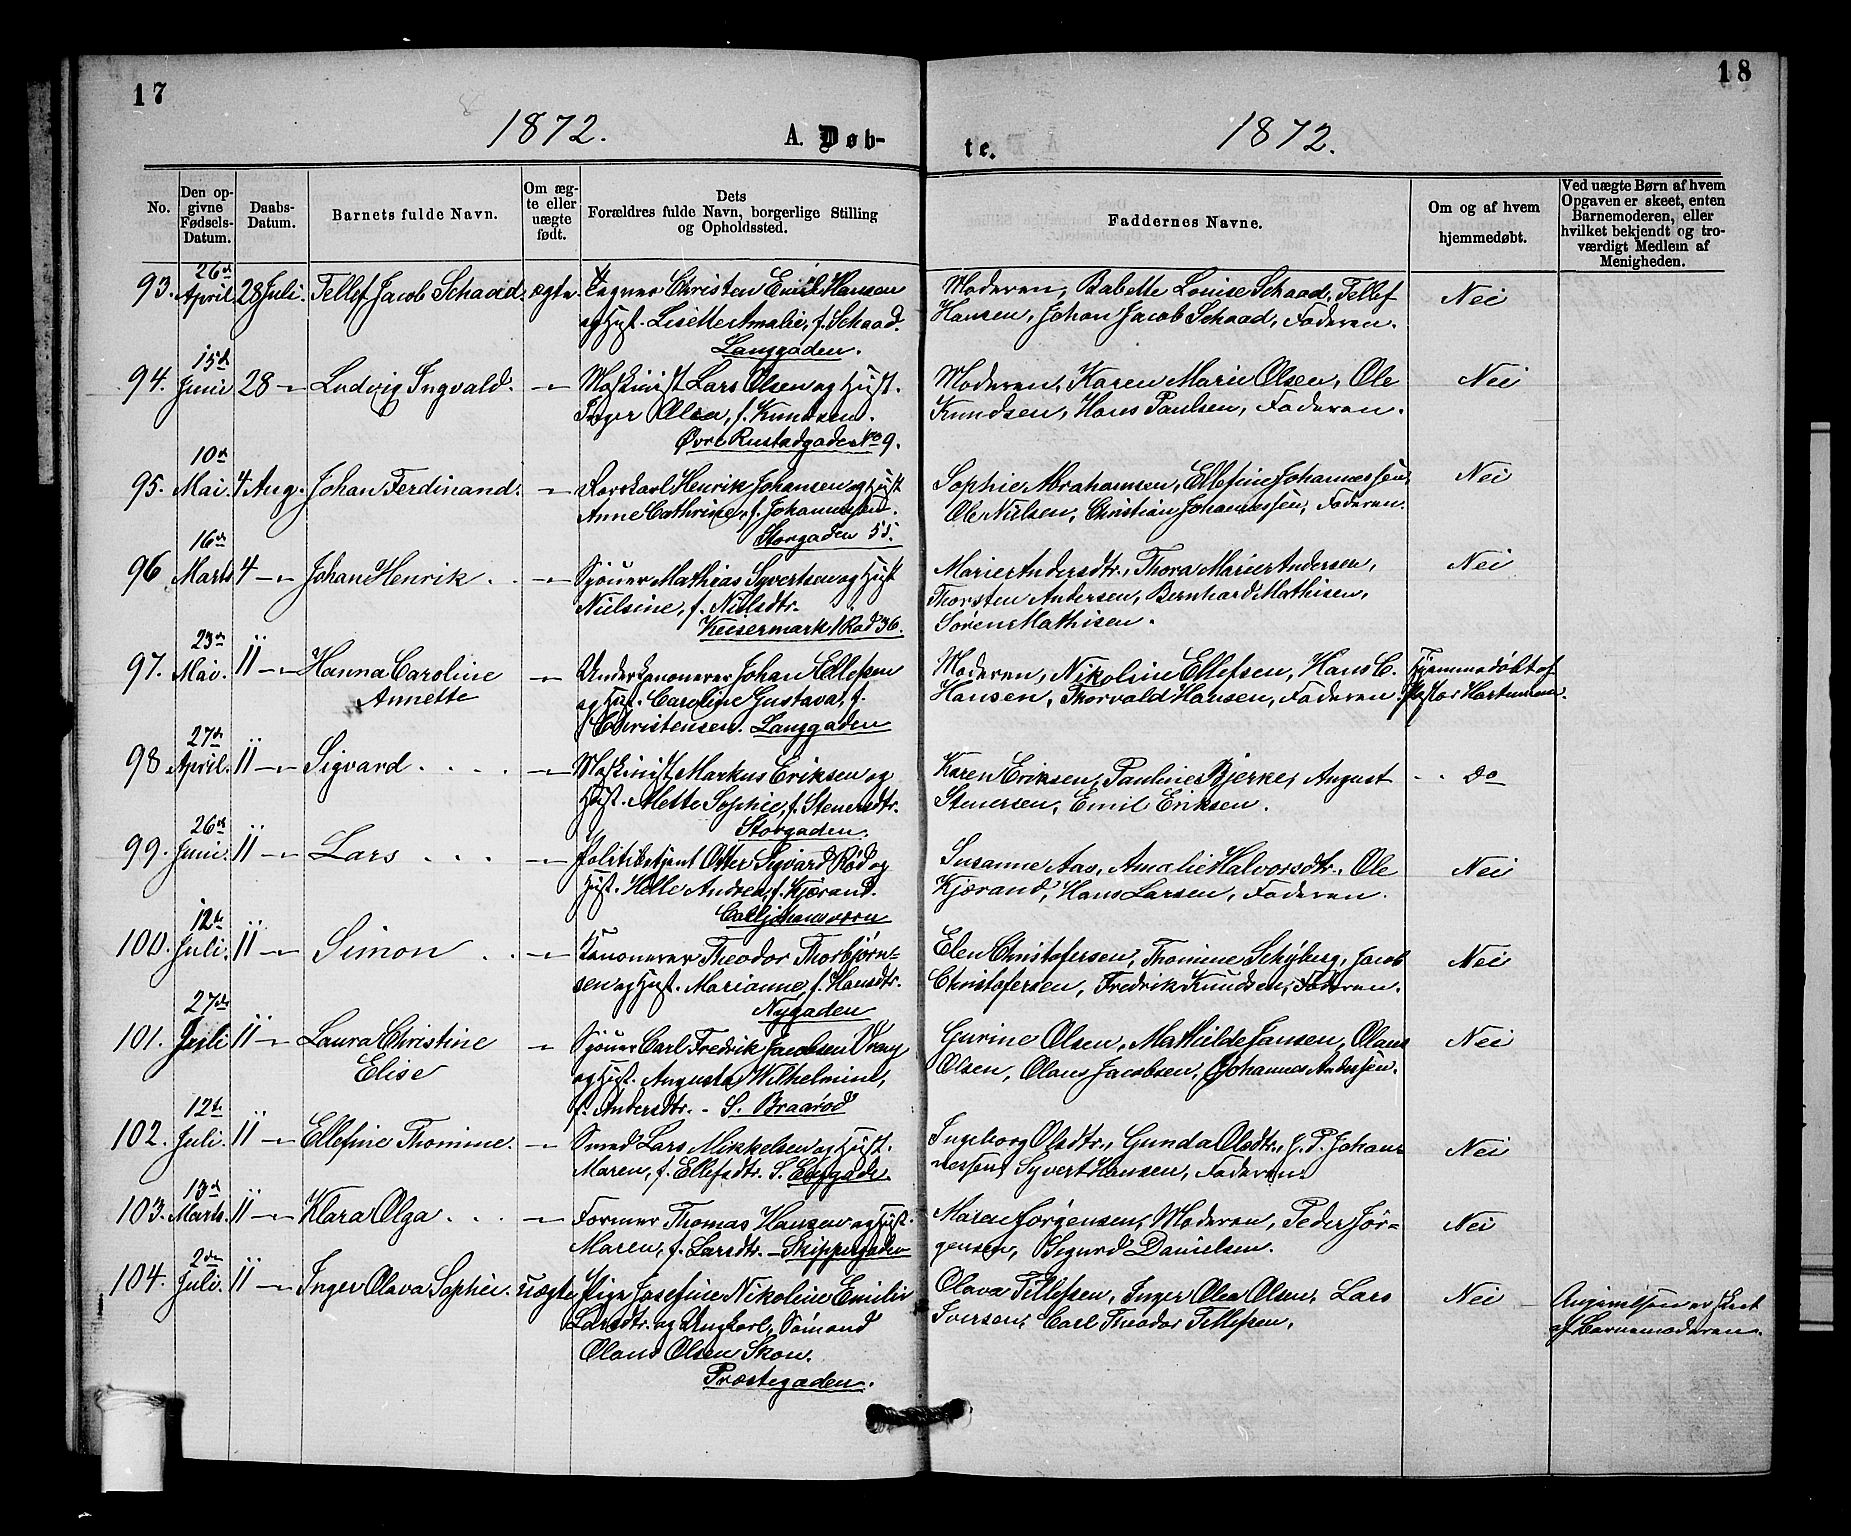 17
1872.
A. Døb-
No.
Den opgivne Fødsels-Datum.
Daabs-Datum.
Barnets fulde Navn.
Om ægte eller uægte født.
Dets Forældres fulde Navn, borgerlige Stilling og Opholdssted.
93. 26de April 28 Juli. Tellef Jacob Schaad. ægte. Tegner Christen Emil Hansen
og Hust. Lisette Amalie, f. Schaad.
Langgaden.
94. 15de Juni 28 -"- Ludvig Ingvald. -"- Maskinist Lars Olsen og Hust.
Inger Olea, f. Knudsen.
Øvre Rustadgade No 9.
95. 10de Mai. 4 Aug. Johan Ferdinand. -"- Henrik Johansen og Hust
Anne Cathrine, f. Johannessen.
Storgaden 55.
96 16de Marts 4 -"- Johan Henrik. -"- Sjøuer Mathias Syvertsen og Hust
Nielsine, f. Nielsdtr.
Keisermark 1 Rad 36.
97. 23de Mai. 11 -"- Hanna Caroline -"- Underkanonerer Johan Ellefsen
Annette og Hust. Caroline Gustava, f.
Christensen. Langgaden
98 27de April. 11 -"- Sigvard. -"- Maskinist Markus Eriksen og
Hust. Mette Sophie, f. Stenersdtr.
Storgaden.
99. 26de Juni. 11 -"- Lars -"- Politibetjent Otter Sigvard Rød og
Hust. Helle Andrea, f. Kjørand.
Carljohansværn
100. 12te Juli. 11 -"- Simon -"- Kanonerer Theodor Thorbjørn=
sen og Hust. Marianne, f. Hansdtr.
Nygaden
101. 27de Juli 11 -"- Laura Christine -"- Sjøuer Carl Fredrik Jacobsen
Elise og Hust. Augusta Wilhelmine,
f. Andersdtr. - S. Braarød
102. 12te Juli. 11 -"- Ellefine Thomine. -"- Smed Lars Mikkelsen og Hust.
Maren, f. Ellefsdtr. S.
103. 13de Marts. 11 -"- Klara Olga. -"- Former Thomas Hansen og Hust.
Maren, f. Larsdtr. - Skippergaden
104. 2den Juli. 11 -"- Inger Olava Sophie. uægte Pige Josefine Nikoline Emilie
Larsdtr. og Ungkarl, Sømand
Olaus Olsen Skon.
Præstegaden.
18
te.
1872.
Faddernes Navne.
Om og af hvem hjemmedøbt.
Ved uægte Børn af hvem Opgaven er skeet, enten Barnemoderen, eller hvilket bekjendt og troværdigt Medlem af Menigheden.
Moderen, Babette Louise Schaad, Tellef Nei
Hansen, Johan Jacob Schaad, Faderen.
Moderen, Karen Marie Olsen, Ole Nei
Knudsen, Hans Paulsen, Faderen.
Sophie Abrahamsen, Ellefine Johannessen, Nei
Ole Nielsen, Christian Johannessen, Faderen.
Marie Andersdtr., Thora Marie Andersen, Nei
Thorsten Andersen, Bernhard Mathisen,
Søren Mathisen.
Moderen, Nikoline Ellefsen, Hans C. Hjemmedøbt af
Hansen, Thorvald Hansen, Faderen. Pastor Hartmann.
Karen Eriksen, Pauline Bjerke, August - do
Stenersen, Emil Eriksen.
Susanne Aas, Amalie Halvorsdtr., Ole Nei
Kjørand, Hans Larsen, Faderen.
Elen Christofersen, Thomine Schyberg, Jacob Nei
Christofersen, Fredrik Knudsen, Faderen.
Gurine Olsen, Mathilde Jansen, Olaus Nei
Olsen, Olaus Jacobsen, Johannes Andersen.
Ingeborg Olsdtr., Gunda Olsdtr., J. P. Johan- Nei
nessen, Syvert Hansen, Faderen
Maren Jørgensen, Moderen, Peder Jør- Nei
gensen, Sigurd Danielsen.
Olava Tellefsen, Inger Olea Olsen, Lars Nei Angivelsen er skeet
Iversen, Carl Theodor Tellefsen. af Barnemoderen.